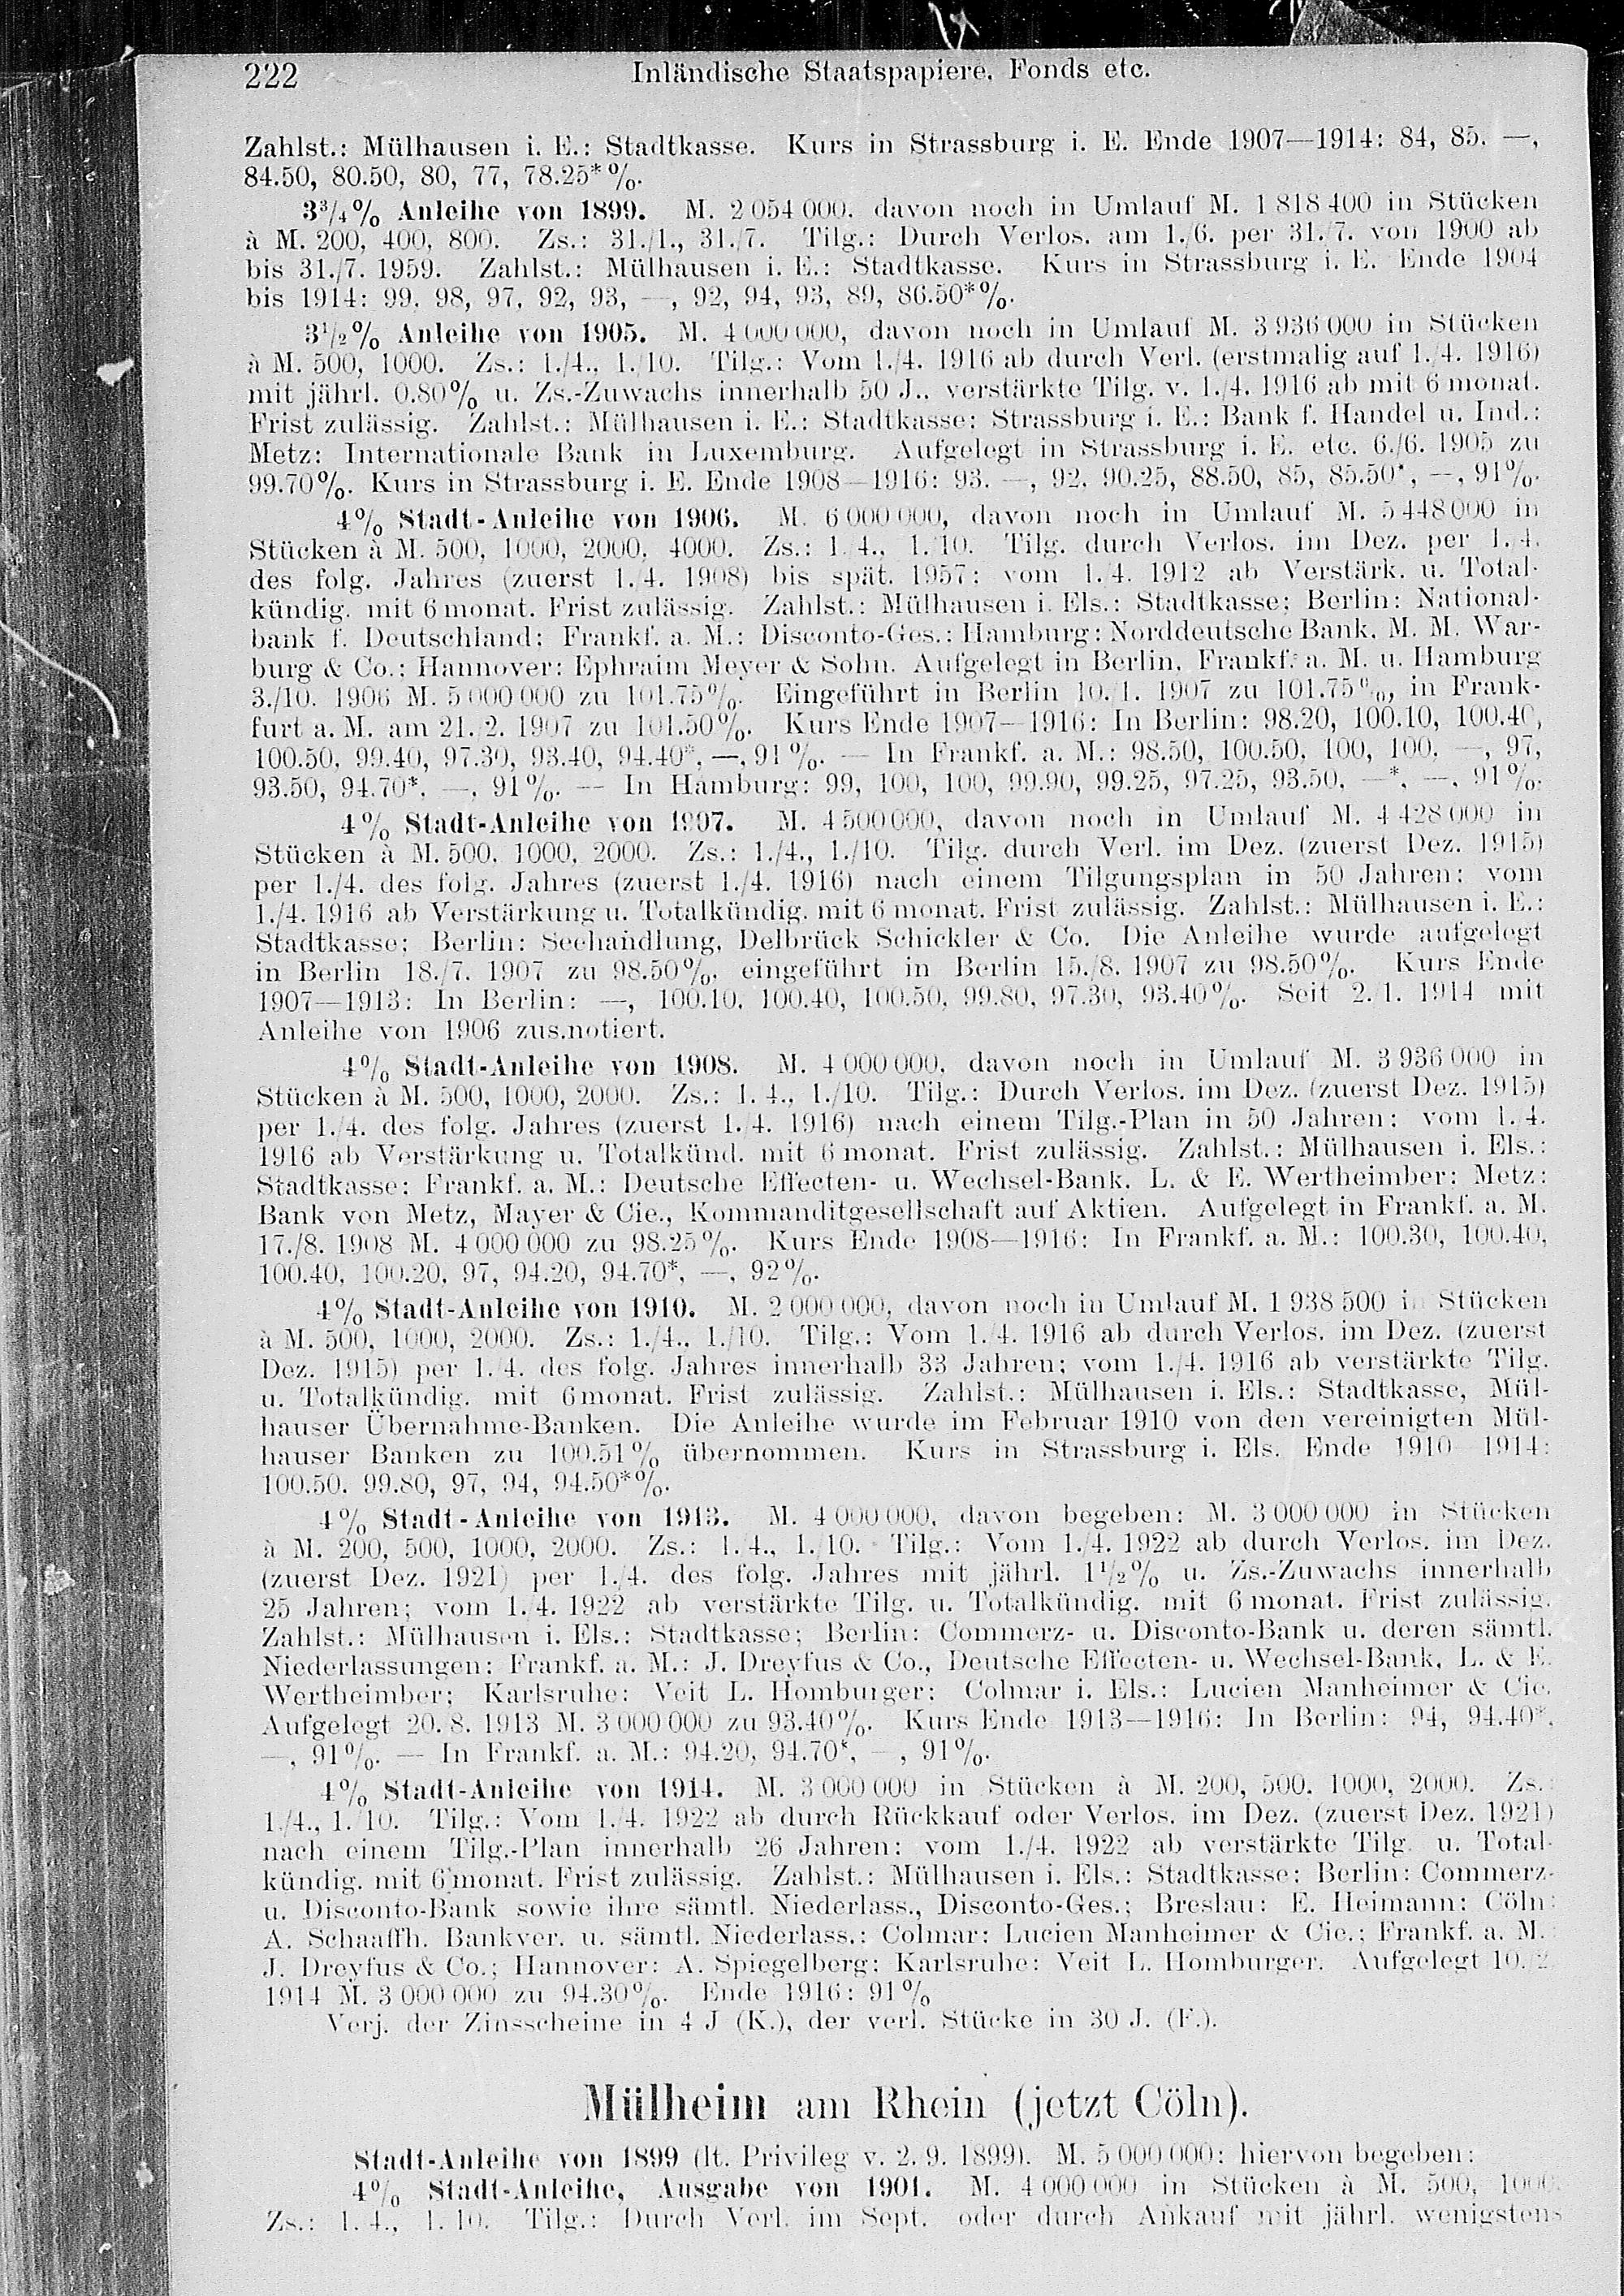 222 Inländische Staatspapiere, Fonds etc.
Zahlst.: Mülhausen i. E.: Stadtkasse. Kurs in Strassburg i. E. Ende 1907—1914: 84, 85. —,
84.50, 80.50, 80, 77, 78.25*%.
3¾% Anleihe von 1899. M. 2 054 000, davon noch in Umlauf M. 1 818 400 in Stücken
à M. 200, 400, 800. Zs.: 31./1., 31./7. Tilg.: Durch Verlos. am 1./6. per 31./7. von 1900 ab
bis 31./7. 1959. Zahlst.: Mülhausen i. E.: Stadtkasse. Kurs in Strassburg i. E. Ende 1904
bis 1914: 99, 98, 97, 92, 93, —, 92, 94, 93, 89, 86.50*%.
3½% Anleihe von 1905. M. 4 000 000, davon noch in Umlauf M. 3 936 000 in Stücken
à M. 500, 1000. Zs.: 1./4., 1./10. Tilg.: Vom 1./4. 1916 ab durch Verl. (erstmalig auf 1./4. 1916)
mit jährl. 0.80% u. Zs.-Zuwachs innerhalb 50 J., verstärkte Tilg. v. 1./4. 1916 ab mit 6 monat.
Frist zulässig. Zahlst.: Mülhausen i. E.: Stadtkasse; Strassburg i. E.: Bank f. Handel u. Ind.;
Metz: Internationale Bank in Luxemburg. Aufgelegt in Strassburg i. E. etc. 6./6. 1905 zu
99.70%. Kurs in Strassburg i. E. Ende 1908—1916: 93. —, 92, 90.25, 88.50, 85, 85.50*, —, 91%.
4% Stadt-Anleihe von 1906. M. 6 000 000, davon noch in Umlauf M. 5 448 000 in
Stücken à M. 500, 1000, 2000, 4000. Zs.: 1./4., 1./10. Tilg. durch Verlos. im Dez. per 1./4.
des folg. Jahres (zuerst 1./4. 1908) bis spät. 1957; vom 1./4. 1912 ab Verstärk. u. Total-
kündig. mit 6 monat. Frist zulässig. Zahlst.: Mülhausen i. Els.: Stadtkasse; Berlin: National-
bank f. Deutschland; Frankf. a. M.: Disconto-Ges.; Hamburg: Norddeutsche Bank, M. M. War-
burg & Co.; Hannover: Ephraim Meyer & Sohn. Aufgelegt in Berlin, Frankf. a. M. u. Hamburg
3./10. 1906 M. 5 000 000 zu 101.75%. Eingeführt in Berlin 10./1. 1907 zu 101.75%, in Frank-
furt a. M. am 21./2. 1907 zu 101.50%. Kurs Ende 1907—1916: In Berlin: 98.20, 100.10, 100.40,
100.50, 99.40, 97.30, 93.40, 94.40*, —, 91%. — In Frankf. a. M.: 98.50, 100.50, 100, 100, —, 97,
93.50, 94.70*, —, 91%. — In Hamburg: 99, 100, 100, 99.90, 99.25, 97.25, 93.50, —*, —, 91%.
4% Stadt-Anleihe von 1907. M. 4 500 000, davon noch in Umlauf M. 4 428 000 in
Stücken à M. 500, 1000, 2000. Zs.: 1./4., 1./10. Tilg. durch Verl. im Dez. (zuerst Dez. 1915)
per 1./4. des folg. Jahres (zuerst 1./4. 1916) nach einem Tilgungsplan in 50 Jahren; vom
1./4. 1916 ab Verstärkung u. Totalkündig. mit 6 monat. Frist zulässig. Zahlst.: Mülhausen i. E.:
Stadtkasse; Berlin: Seehandlung, Delbrück Schickler & Co. Die Anleihe wurde aufgelegt
in Berlin 18./7. 1907 zu 98.50%, eingeführt in Berlin 15./8. 1907 zu 98.50%. Kurs Ende
1907—1913: In Berlin: —, 100.10, 100.40, 100.50, 99.80, 97.30, 93.40%. Seit 2./1. 1914 mit
Anleihe von 1906 zus.notiert.
4% Stadt-Anleihe von 1908. M. 4 000 000, davon noch in Umlauf M. 3 936 000 in
Stücken à M. 500, 1000, 2000. Zs.: 1. 4., 1./10. Tilg.: Durch Verlos. im Dez. (zuerst Dez. 1915)
per 1./4. des folg. Jahres (zuerst 1./4. 1916) nach einem Tilg.-Plan in 50 Jahren; vom 1./4.
1916 ab Verstärkung u. Totalkünd. mit 6 monat. Frist zulässig. Zahlst.: Mülhausen i. Els.:
Stadtkasse; Frankf. a. M.: Deutsche Effecten- u. Wechsel-Bank, L. & E. Wertheimber; Metz:
Bank von Metz, Mayer & Cie., Kommanditgesellschaft auf Aktien. Aufgelegt in Frankf. a. M.
17./8. 1908 M. 4 000 000 zu 98.25%. Kurs Ende 1908—1916: In Frankf. a. M.: 100.30, 100.40,
100.40, 100.20, 97, 94.20, 94.70*, —, 92%.
4% Stadt-Anleihe von 1910. M. 2 000 000, davon noch in Umlauf M. 1 938 500 in Stücken
à M. 500, 1000, 2000. Zs.: 1./4., 1./10. Tilg.: Vom 1./4. 1916 ab durch Verlos. im Dez. (zuerst
Dez. 1915) per 1./4. des folg. Jahres innerhalb 33 Jahren; vom 1./4. 1916 ab verstärkte Tilg.
u. Totalkündig. mit 6monat. Frist zulässig. Zahlst.: Mülhausen i. Els.: Stadtkasse, Mül-
hauser Übernahme-Banken. Die Anleihe wurde im Februar 1910 von den vereinigten Mül-
hauser Banken zu 100.51% übernommen. Kurs in Strassburg i. Els. Ende 1910—1914:
100.50, 99.80, 97, 94, 94.50*%.
4% Stadt-Anleihe von 1913. M. 4 000 000, davon begeben: M. 3 000 000 in Stücken
à M. 200, 500, 1000, 2000. Zs.: 1./4., 1./10. Tilg.: Vom 1./4. 1922 ab durch Verlos. im Dez.
(zuerst Dez. 1921) per 1./4. des folg. Jahres mit jährl. 1½% u. Zs.-Zuwachs innerhalb
25 Jahren; vom 1./4. 1922 ab verstärkte Tilg. u. Totalkündig. mit 6 monat. Frist zulässig.
Zahlst.: Mülhausen i. Els.: Stadtkasse; Berlin: Commerz- u. Disconto-Bank u. deren sämtl.
Niederlassungen; Frankf. a. M.: J. Dreyfus & Co., Deutsche Effecten- u. Wechsel-Bank, L. & E.
Wertheimber; Karlsruhe: Veit L. Homburger; Colmar i. Els.: Lucien Manheimer & Cie.
Aufgelegt 20. 8. 1913 M. 3 000 000 zu 93.40%. Kurs Ende 1913—1916: In Berlin: 94, 94.40*,
—, 91%. — In Frankf. a. M.: 94.20, 94.70*, —, 91%.
4% Stadt-Anleihe von 1914. M. 3 000 000 in Stücken à M. 200, 500, 1000, 2000. Zs.:
1./4., 1./10. Tilg.: Vom 1./4. 1922 ab durch Rückkauf oder Verlos. im Dez. (zuerst Dez. 1921)
nach einem Tilg.-Plan innerhalb 26 Jahren; vom 1./4. 1922 ab verstärkte Tilg. u. Total-
kündig. mit 6 monat. Frist zulässig. Zahlst.: Mülhausen i. Els.: Stadtkasse; Berlin: Commerz-
u. Disconto-Bank sowie ihre sämtl. Niederlass., Disconto-Ges.; Breslau: E. Heimann; Cöln:
A. Schaaffh. Bankver. u. sämtl. Niederlass.; Colmar: Lucien Manheimer & Cie.; Frankf. a. M.:
J. Dreyfus & Co.; Hannover: A. Spiegelberg; Karlsruhe: Veit L. Homburger. Aufgelegt 10./2.
1914 M. 3 000 000 zu 94.30%. Ende 1916: 91%
Verj. der Zinsscheine in 4 J (K.), der verl. Stücke in 30 J. (F.).
Mülheim am Rhein (jetzt Cöln).
Stadt-Anleihe von 1899 (lt. Privileg v. 2. 9. 1899). M. 5 000 000; hiervon begeben:
4% Stadt-Anleihe, Ausgabe von 1901. M. 4 000 000 in Stücken à M. 500, 1000.
Zs.: 1. 4., 1. 10. Tilg.: Durch Verl. im Sept. oder durch Ankauf mit jährl. wenigstens